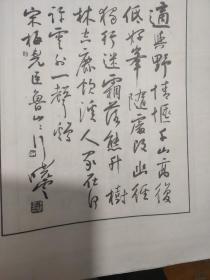 適與野情愜千山高復
低好峰隨處改幽徑
獨行迷霜落熊升樹
林空鹿飲溪人家在何
許雲外一聲雞
宋梅堯臣魯山山行